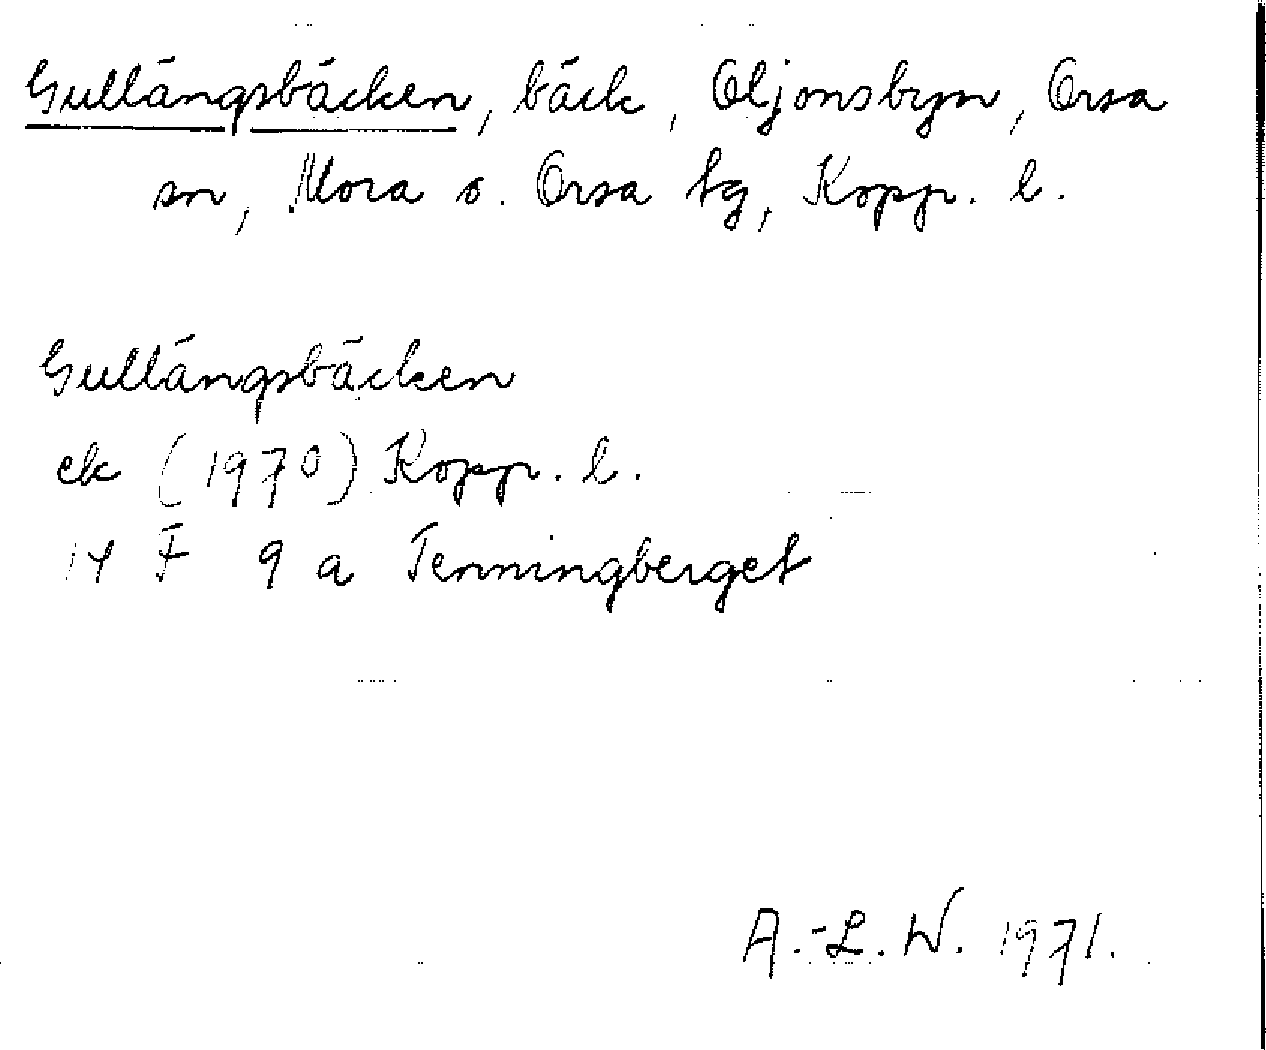 Gullängsbäcken, bäck, Oljonsbyn, Orsa
sn, Mora o. Orsa tg, Kopp. l.
Gullängsbäcken
ek (1970) Kopp. l.
14 F 9 a Tenningberget
A.-L. W. 1971.